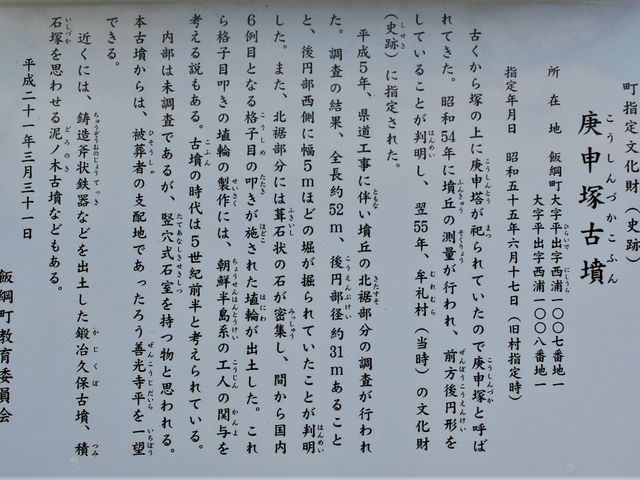 町指定文化財(史跡)
庚申塚古墳
こうしんづかこふん
所在地 飯綱町大字平出字西浦一〇〇七番地一
大字平出字西浦一〇〇八番地一
指定年月日 昭和五十五年六月十七日(旧村指定時)
古くから塚の上に庚申塔が祀られていたので庚申塚と呼ば
れてきた。昭和54年に墳丘の測量が行われ、前方後円形を
していることが判明し、翌55年、牟礼村(当時)の文化財
(史跡)に指定された。
平成5年、県道工事に伴い墳丘の北裾部分の調査が行われ
た。調査の結果、全長約52m、後円部径約31mあること
と、後円部西側に幅5mほどの堀が掘られていたことが判明
した。また、北裾部分には葺石状の石が密集し、間から国内
6例目となる格子目の叩きが施された埴輪が出土した。これ
ら格子目叩きの埴輪の製作には、朝鮮半島系の工人の関与を
考える説もある。古墳の時代は5世紀前半と考えられている。
内部は未調査であるが、竪穴式石室を持つ物と思われる。
本古墳からは、被葬者の支配地であったろう善光寺平を一望
できる。
近くには、鋳造斧状鉄器などを出土した鍛冶久保古墳、積
石塚を思わせる泥ノ木古墳などもある。
平成二十一年三月三十一日
飯綱町教育委員会